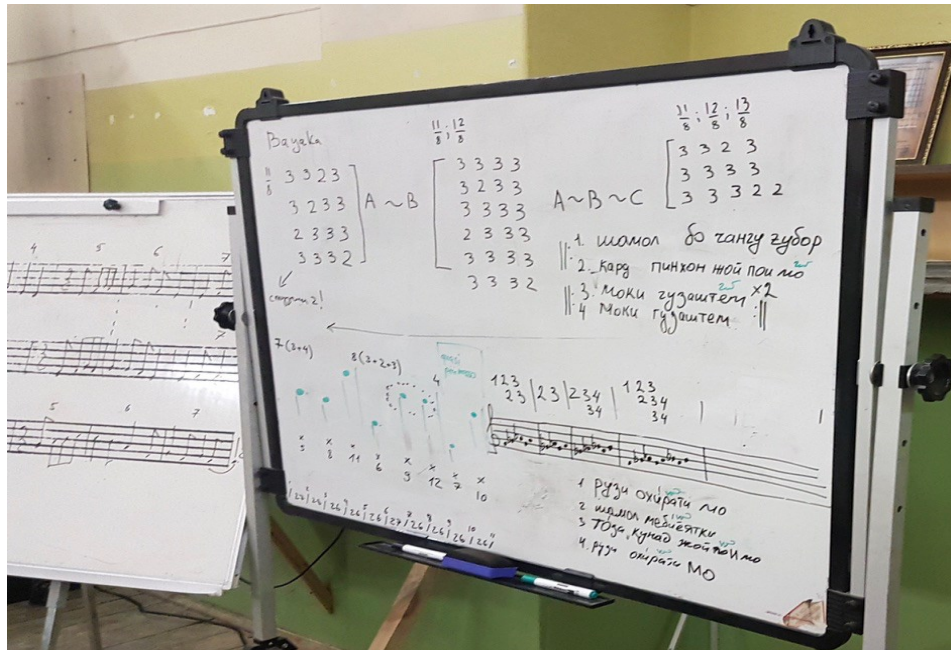 4 5 6 7
7
5 6 7
Bayaka
11/8 3 3 2 3
3 2 3 3
2 3 3 3
3 3 3 2
A ~ B
11/8 ; 12/8
3 3 3 3
3 2 3 3
3 3 3 3
2 3 3 3
3 3 3 3
3 3 3 2
A ~ B ~ C
11/8 ; 12/8 ; 13/8
3 3 2 3
3 3 3 3
3 3 3 2 2
||: 1. шамол бо чангу губор
2. кард пинхон жой пои мо
||: 3. Моки гузаштем ×2
4 Моки гузаштем :||
7 (3+4)
8 (3+2+3)
4
quasi
x x x x x x x x
5 8 11 6 9 12 7 10
1 2 3 | 2 3 | 2 3 4 | 1 2 3
2 3 3 4 2 3 4
3 4
1 рузи охирати мо
2 шамол
3 Тоза кунад жой пои мо
4. рузи охирати мо